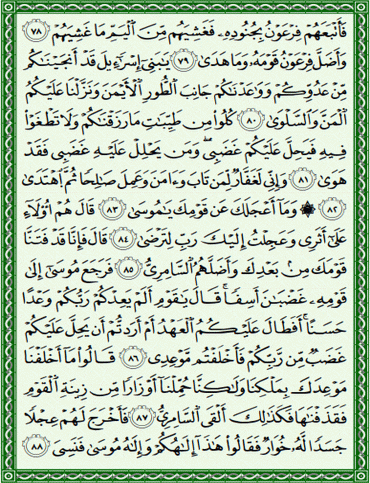 فَأَتْبَعَهُمْ فِرْعَوْنُ بِجُنُودِهِۦ فَغَشِيَهُم مِّنَ ٱلْيَمِّ مَا غَشِيَهُمْ ٧٨
وَأَضَلَّ فِرْعَوْنُ قَوْمَهُۥ وَمَا هَدَىٰ ٧٩ يَٰبَنِىٓ إِسْرَٰٓءِيلَ قَدْ أَنجَيْنَٰكُم
مِّنْ عَدُوِّكُمْ وَوَٰعَدْنَٰكُمْ جَانِبَ ٱلطُّورِ ٱلْأَيْمَنَ وَنَزَّلْنَا عَلَيْكُمُ
ٱلْمَنَّ وَٱلسَّلْوَىٰ ٨٠ كُلُوا۟ مِن طَيِّبَٰتِ مَا رَزَقْنَٰكُمْ وَلَا تَطْغَوْا۟
فِيهِ فَيَحِلَّ عَلَيْكُمْ غَضَبِى ۖ وَمَن يَحْلِلْ عَلَيْهِ غَضَبِى فَقَدْ
هَوَىٰ ٨١ وَإِنِّى لَغَفَّارٌ لِّمَن تَابَ وَءَامَنَ وَعَمِلَ صَٰلِحًا ثُمَّ ٱهْتَدَىٰ
٨٢ ۞ وَمَآ أَعْجَلَكَ عَن قَوْمِكَ يَٰمُوسَىٰ ٨٣ قَالَ هُمْ أُو۟لَآءِ
عَلَىٰٓ أَثَرِى وَعَجِلْتُ إِلَيْكَ رَبِّ لِتَرْضَىٰ ٨٤ قَالَ فَإِنَّا قَدْ فَتَنَّا
قَوْمَكَ مِنۢ بَعْدِكَ وَأَضَلَّهُمُ ٱلسَّامِرِىُّ ٨٥ فَرَجَعَ مُوسَىٰٓ إِلَىٰ
قَوْمِهِۦ غَضْبَٰنَ أَسِفًا ۚ قَالَ يَٰقَوْمِ أَلَمْ يَعِدْكُمْ رَبُّكُمْ وَعْدًا
حَسَنًا ۚ أَفَطَالَ عَلَيْكُمُ ٱلْعَهْدُ أَمْ أَرَدتُّمْ أَن يَحِلَّ عَلَيْكُمْ
غَضَبٌ مِّن رَّبِّكُمْ فَأَخْلَفْتُم مَّوْعِدِى ٨٦ قَالُوا۟ مَآ أَخْلَفْنَا
مَوْعِدَكَ بِمَلْكِنَا وَلَٰكِنَّا حُمِّلْنَآ أَوْزَارًا مِّن زِينَةِ ٱلْقَوْمِ
فَقَذَفْنَٰهَا فَكَذَٰلِكَ أَلْقَى ٱلسَّامِرِىُّ ٨٧ فَأَخْرَجَ لَهُمْ عِجْلًا
جَسَدًا لَّهُۥ خُوَارٌ فَقَالُوا۟ هَٰذَآ إِلَٰهُكُمْ وَإِلَٰهُ مُوسَىٰ فَنَسِىَ ٨٨